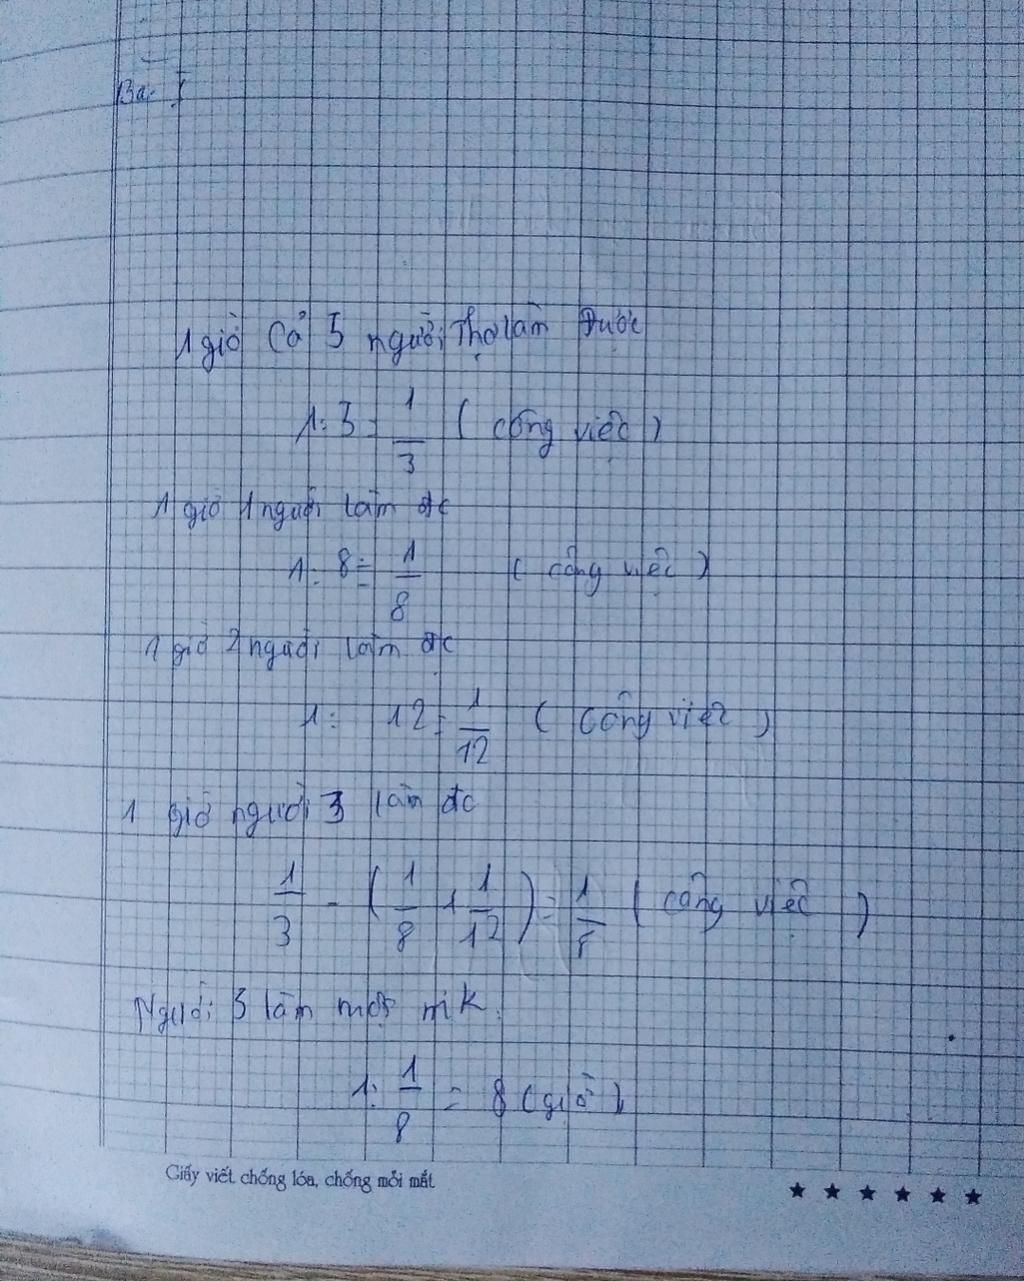 Bài
1 giờ cả 3 người Thợ làm Được
1 : 3 = 1/3 ( công việc )
1 giờ 1 người làm đc
1 : 8 = 1/8 ( công việc )
1 giờ 2 người làm đc
1 : 12 = 1/12 ( công việc )
1 giờ người 3 làm đc
1/3 - ( 1/8 + 1/12 ) = 1/8 ( công việc )
Người 3 làm một mk
1 : 1/8 = 8 ( giờ )
Giấy viết chống lóa, chống mỏi mắt